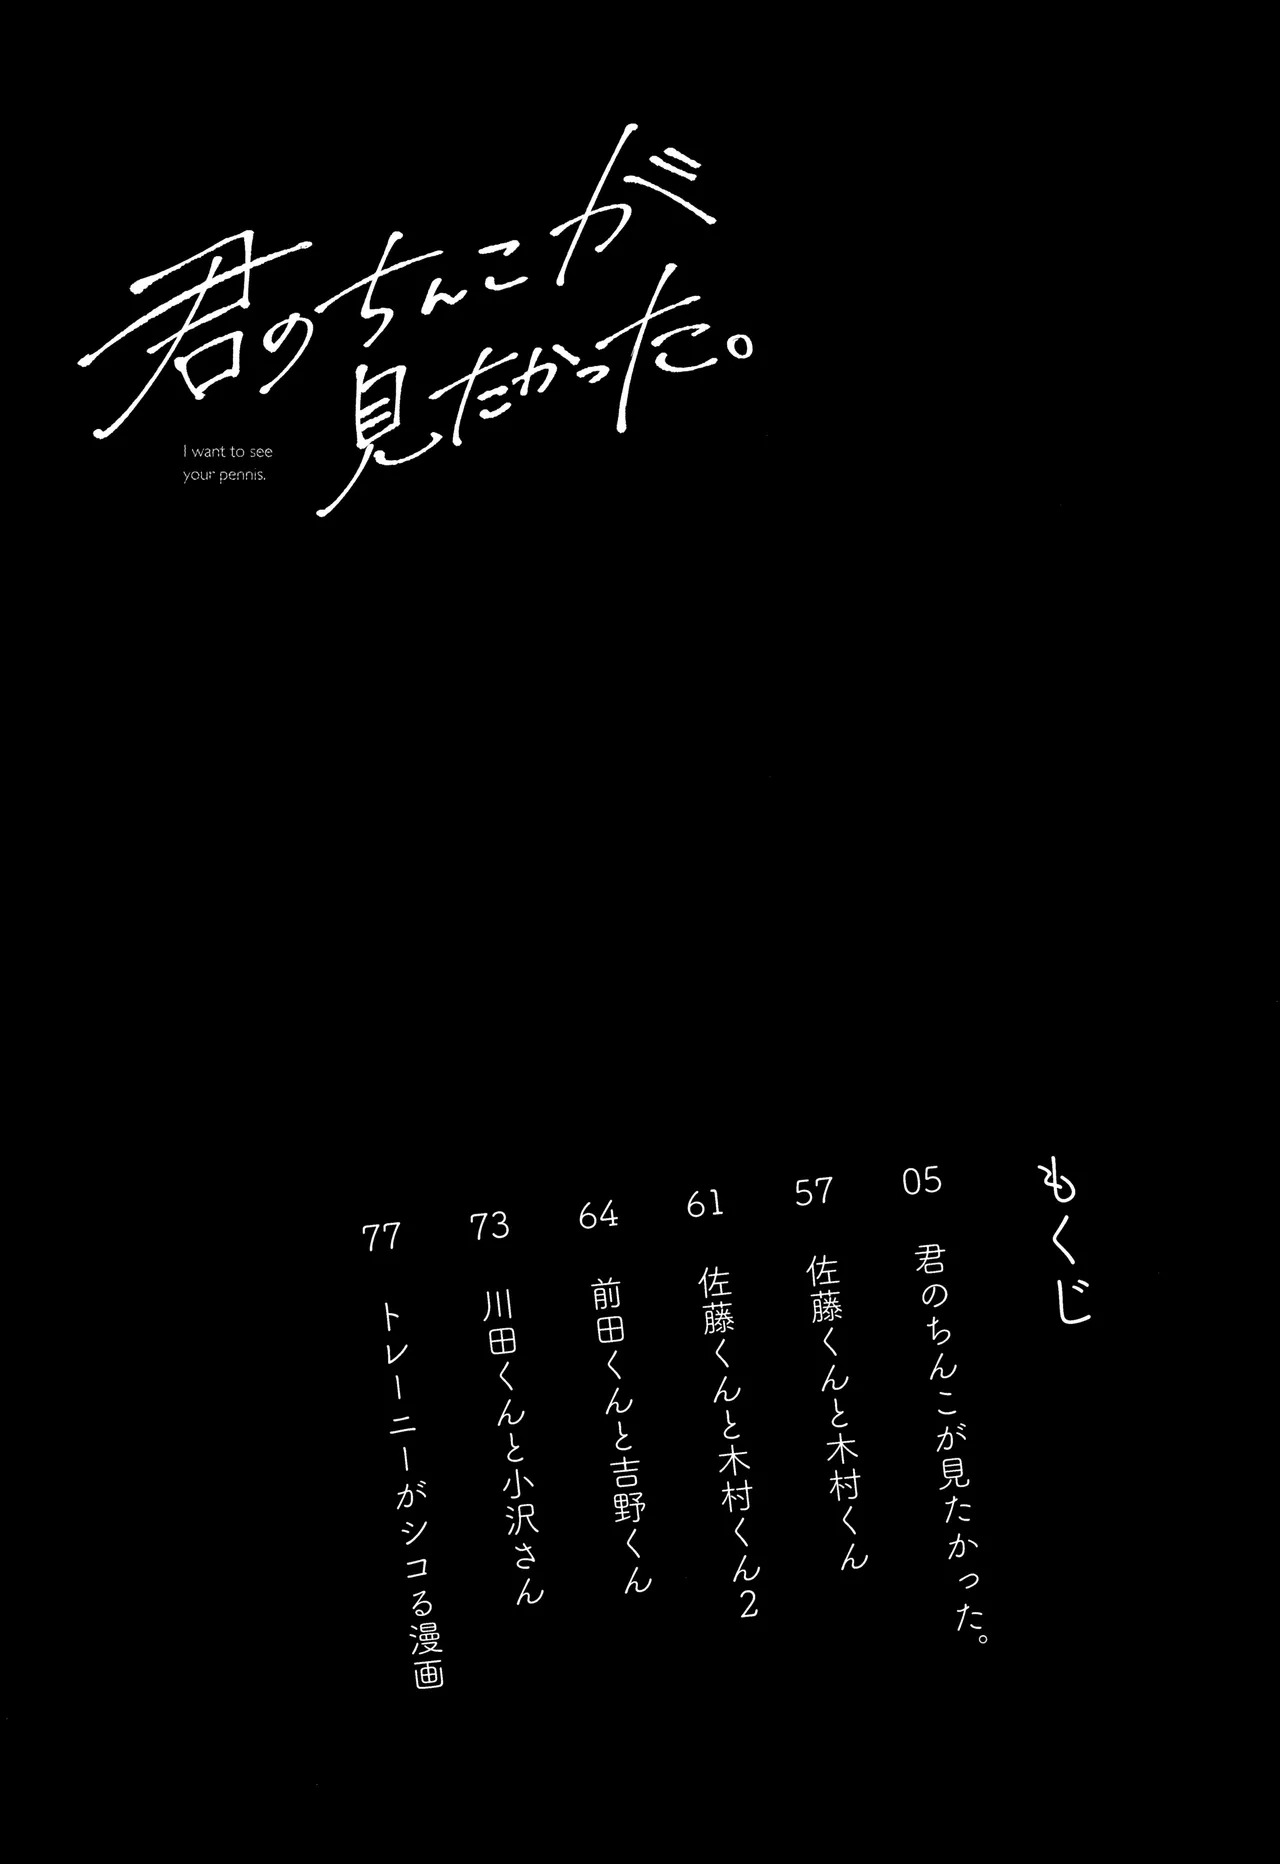 君のちんこが
見たかった。
I want to see
your pennis.
もくじ
05 君のちんこが見たかった。
57 佐藤くんと木村くん
61 佐藤くんと木村くん2
64 前田くんと吉野くん
73 川田くんと小沢さん
77 トレーニーがシコる漫画